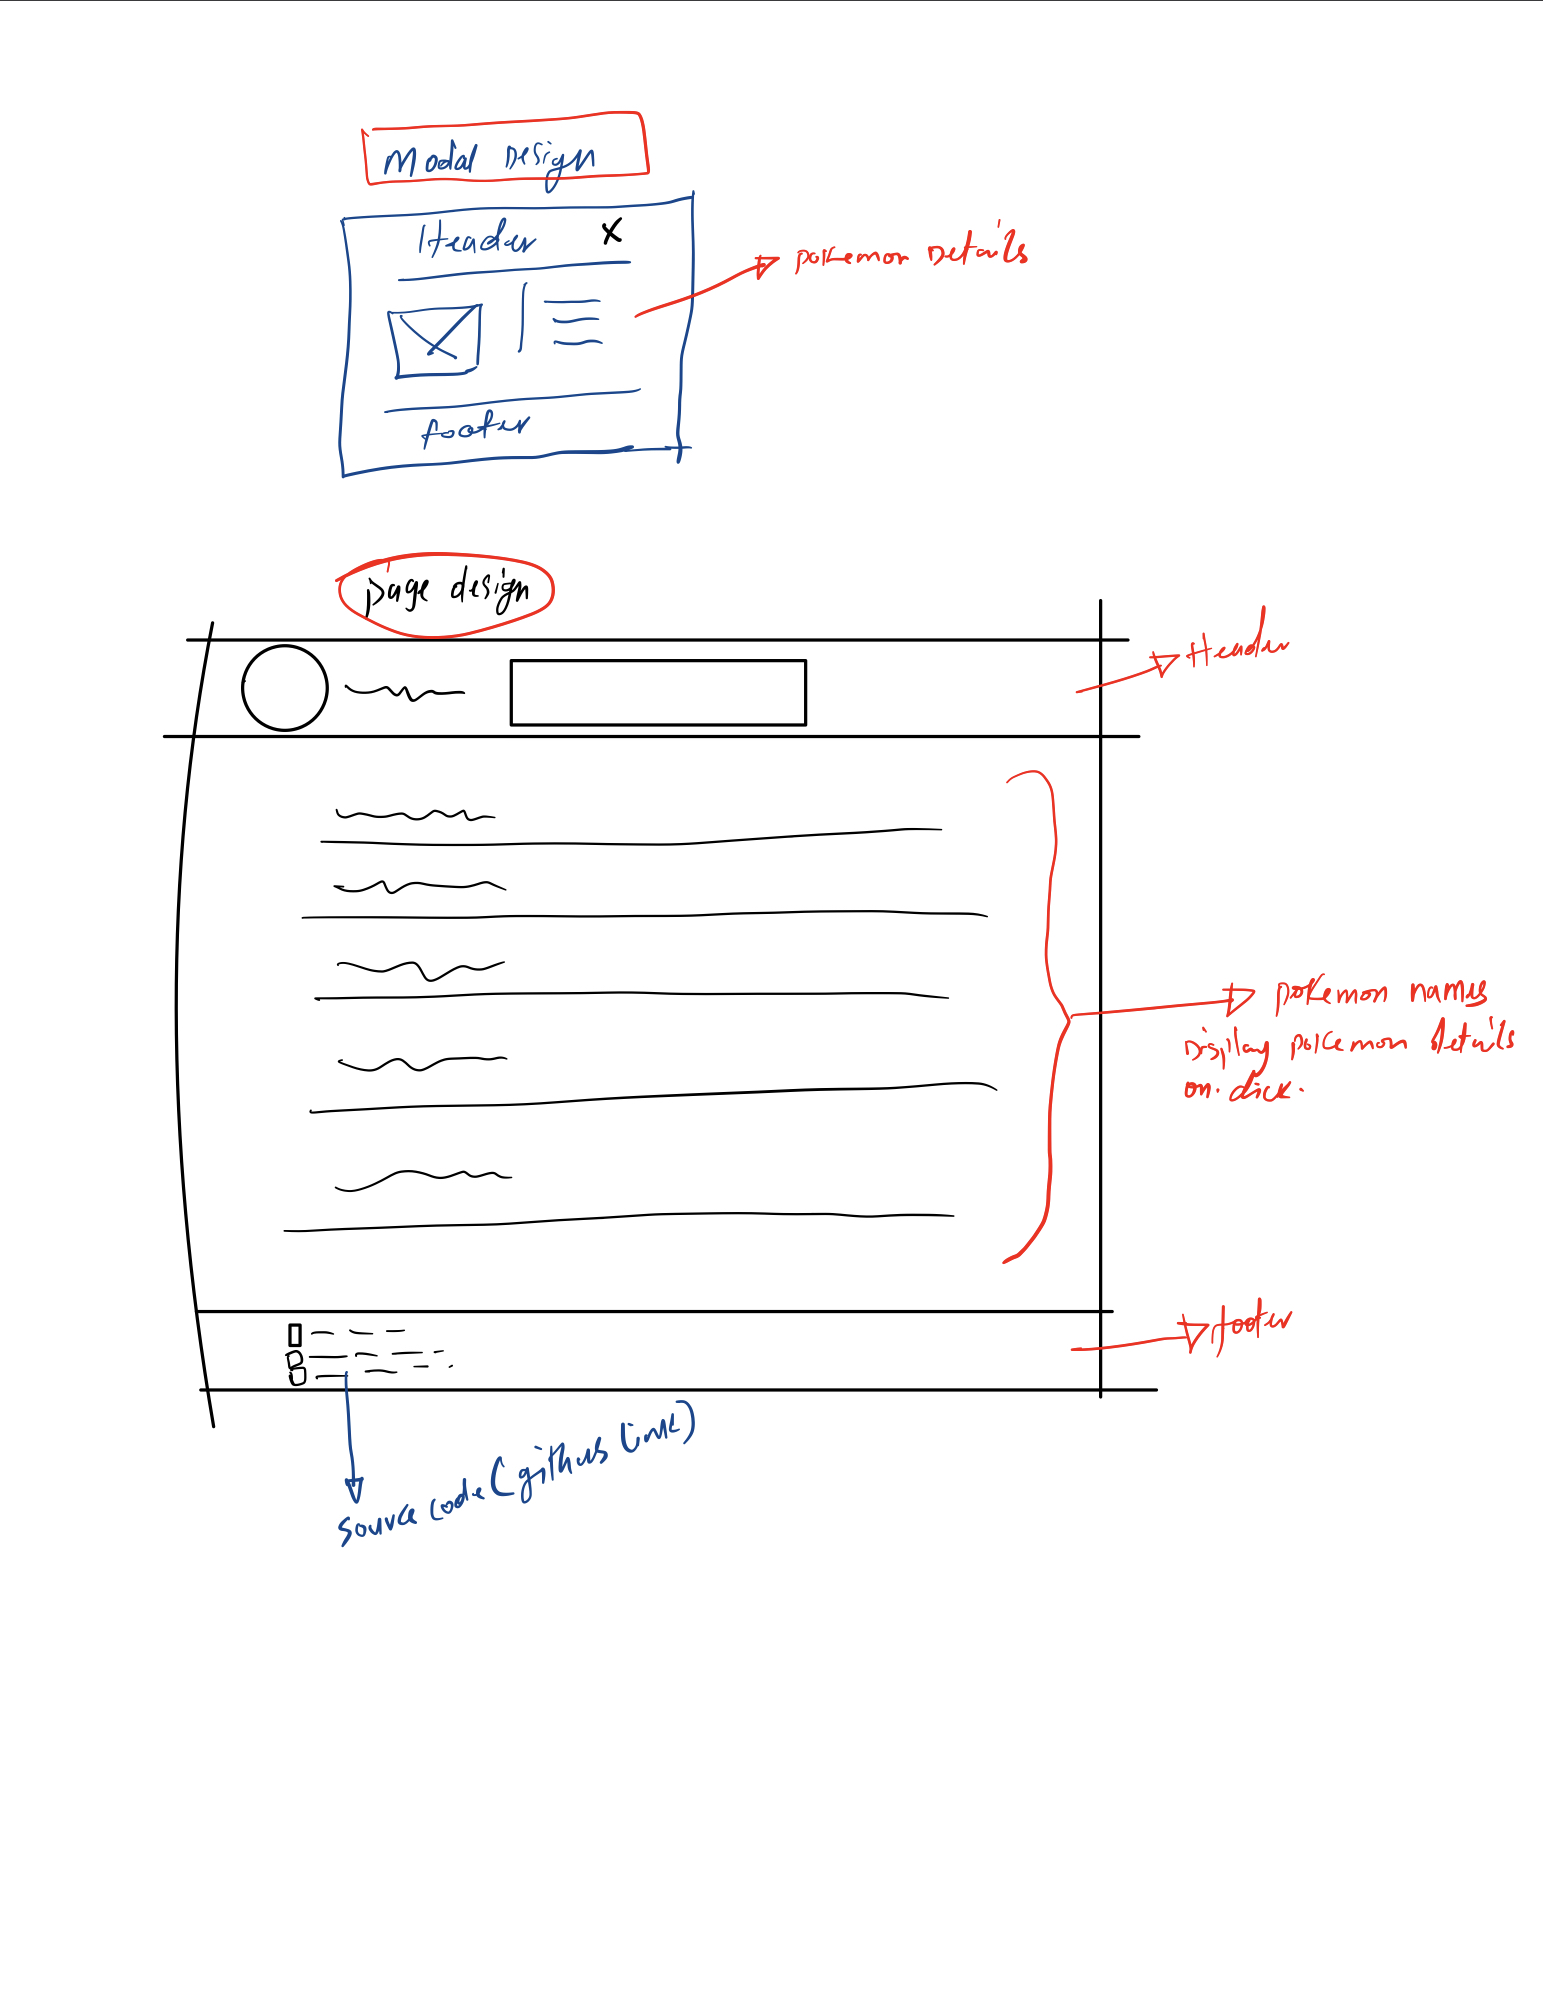 Modal Design
Header X
pokemon Details
footer
page design
Header
pokemon names
Display pokemon details
on click.
footer
source code (github link)